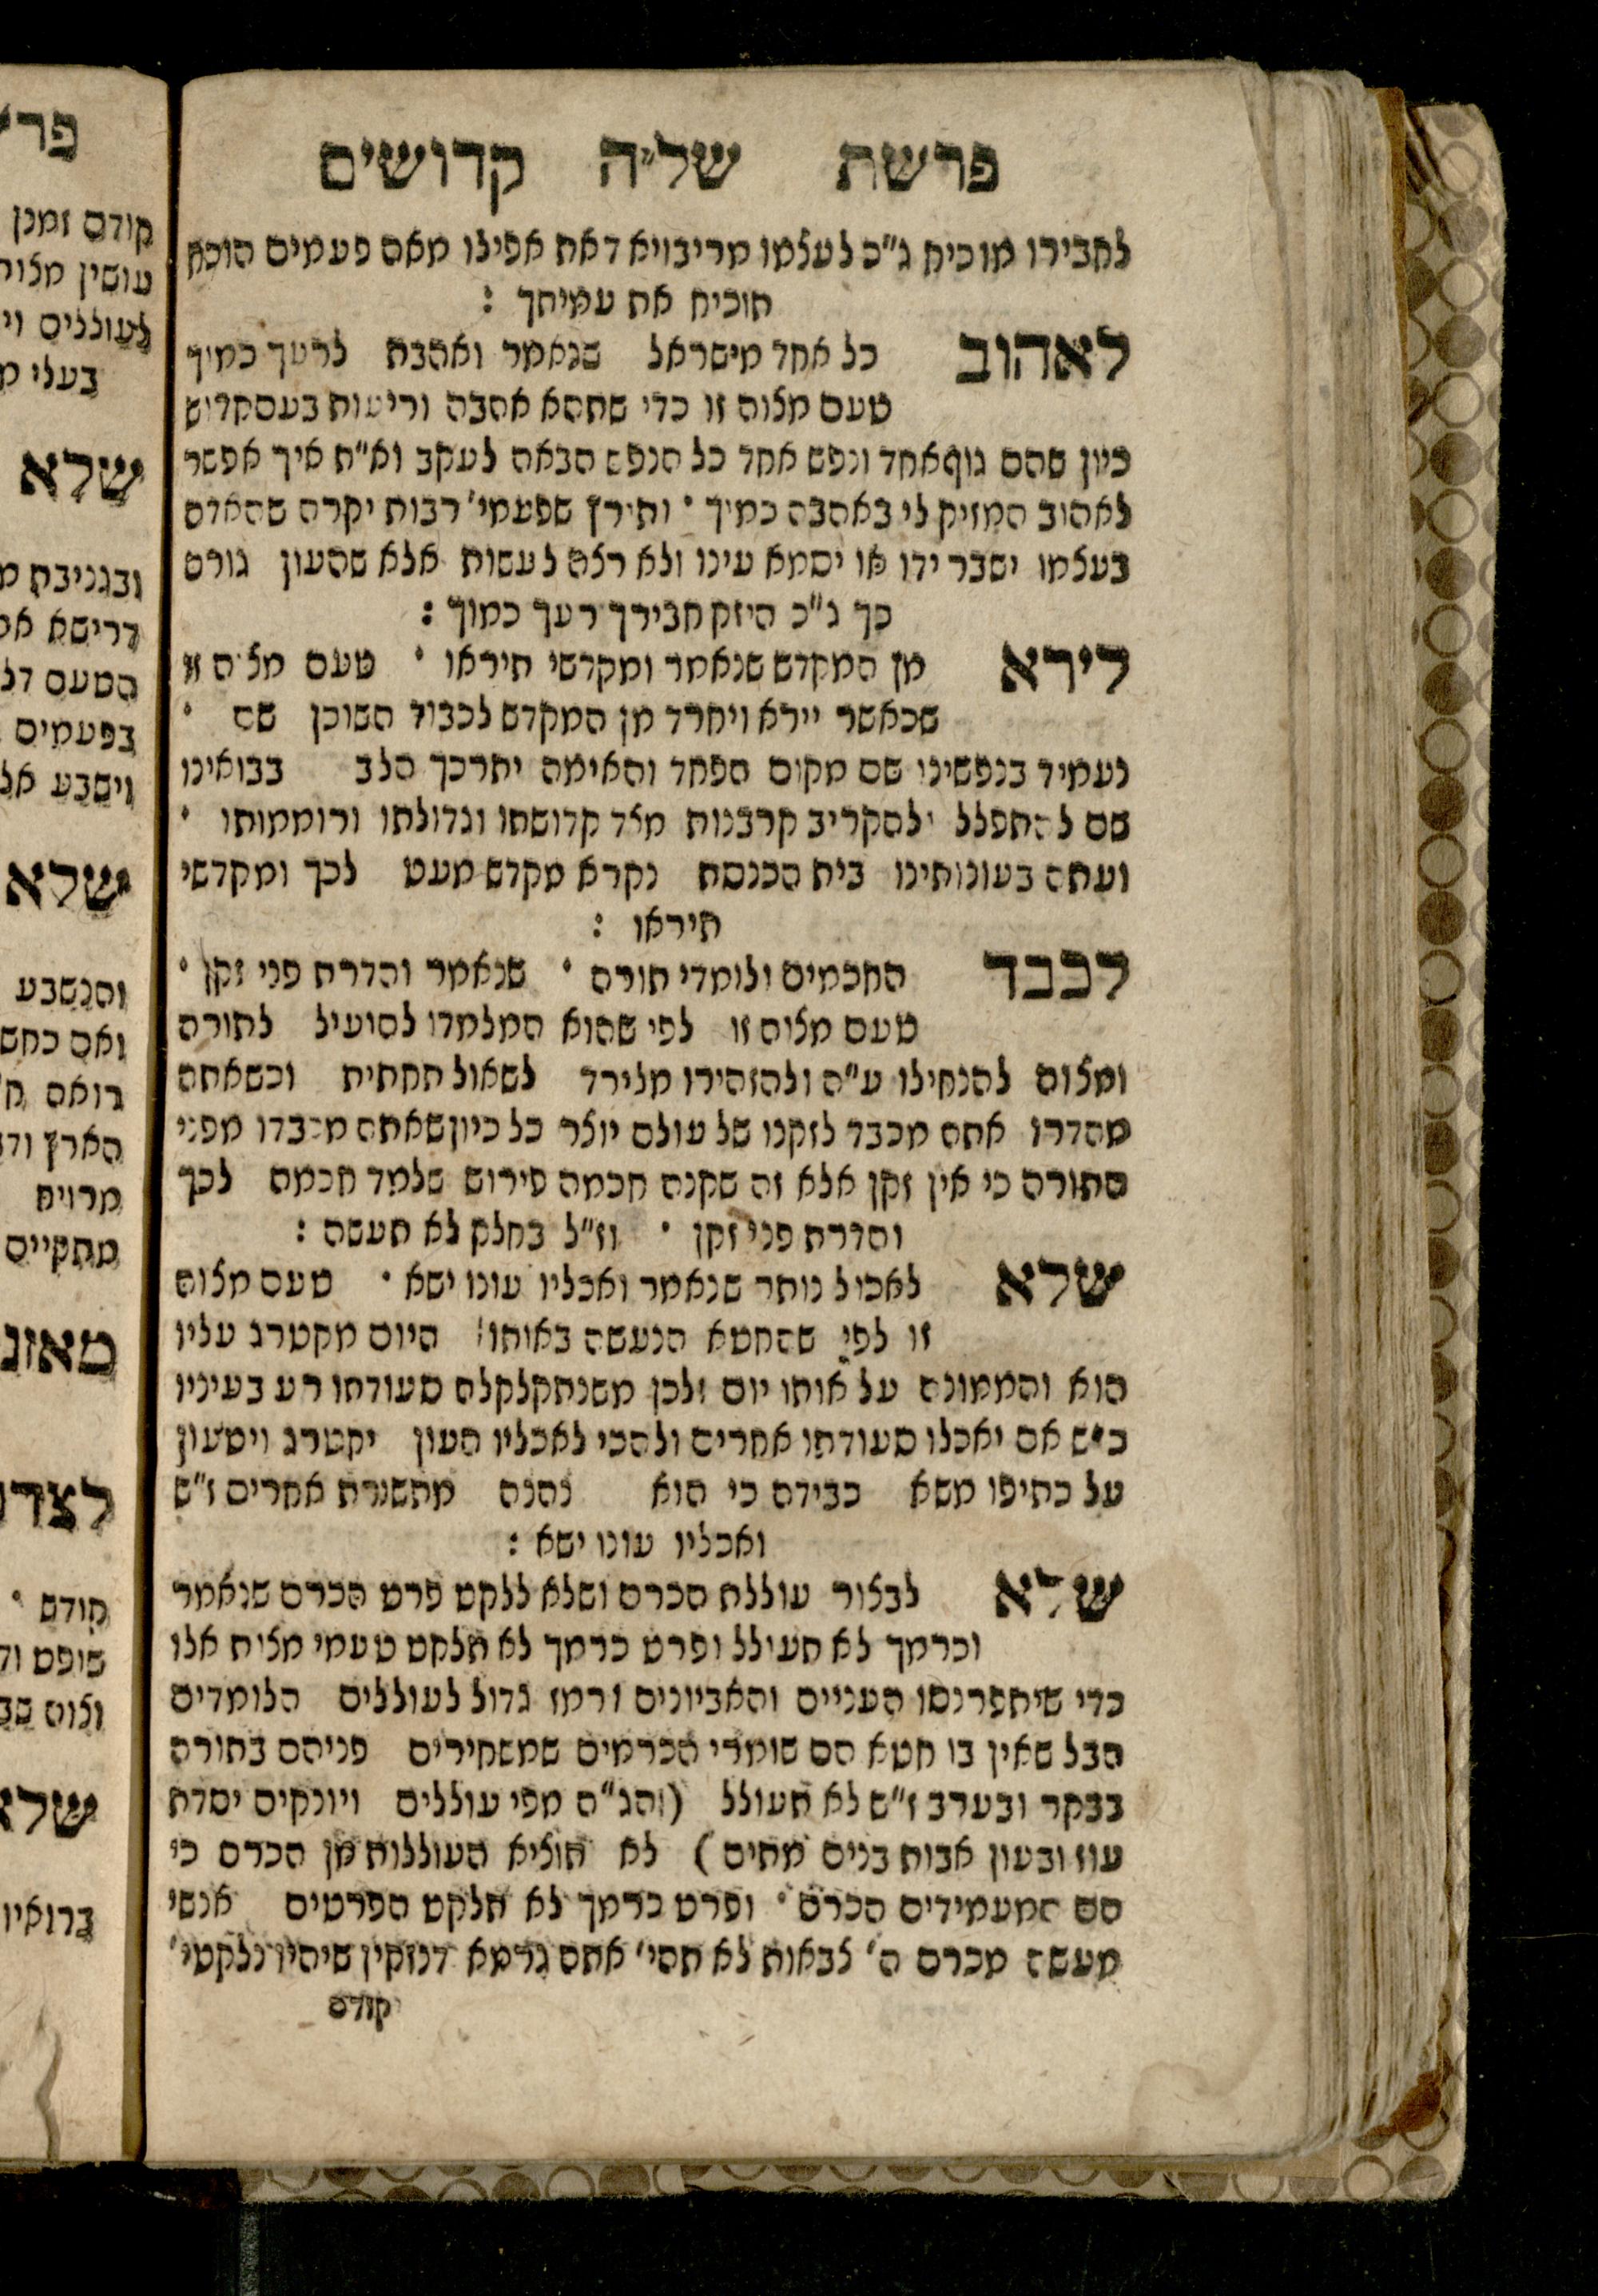 פרשת של״ה קדושים
לחבירו מוכיח ג״כ לעצמו מריבויא דאת אפילו מאה פעמים הוכח
תוכיח את עמיתך :
לאהוב כל אחד מישראל שנאמר ואהבת לרעך כמוך
טעם מצוה זו כדי שתהא אהבה וריעות בעם קדוש
כיון שהם גוף אחד ונפש אחד כל הנפש הבאה לעקב וא״ת איך אפשר
לאהוב המזיק לי באהבה כמוך · ותירץ שפעמי׳ רבות יקרה שהאדם
בעצמו ישבר ידו או יסמא עינו ולא רצה לעשות אלא שהעון גורם
כך ג״כ היזק חבירך רעך כמוך :
לירא מן המקדש שנאמר ומקדשי תיראו · טעם מצוה זו
שכאשר יירא ויחרד מן המקדש לכבוד השוכן שם ·
נעמיד בנפשינו שם מקום הפחד והאימה יתרכך הלב בבואינו
שם להתפלל ולהקריב קרבנות מצד קדושתו וגדולתו ורוממותו ·
ועתה בעונותינו בית הכנסת נקרא מקדש מעט לכך ומקדשי
תיראו :
לכבד החכמים ולומדי תורה · שנאמר והדרת פני זקן ·
טעם מצוה זו לפי שהוא המלמדו להועיל לתורה
ומצות להנחילו ע״ה ולהזהירו מלירד לשאול תחתית וכשאתה
מהדרו אתה מכבד לזקנו של עולם יוצר כל כיון שאתה מכבדו מפני
התורה כי אין זקן אלא זה שקנה חכמה פירוש שלמד חכמה לכך
והדרת פני זקן · וז״ל בחלק לא תעשה :
שלא לאכול נותר שנאמר ואכליו עונו ישא · טעם מצוה
זו לפי שהחטא הנעשה באותו היום מקטרג עליו
הוא והממונה על אותו יום ולכן משנתקלקלה סעודתו רע בעיניו
כ״ש אם יאכלו סעודתו אחרים ולהכי לאכליו העון יקטרג ויטעון
על כתיפו משא כבידה כי הוא נהנה מהשגרת אחרים ז״ש
ואכליו עונו ישא :
שלא לבצור עוללת הכרם ושלא ללקט פרט הכרם שנאמר
וכרמך לא תעולל ופרט כרמך לא תלקט טעמי מצות אלו
כדי שיתפרנסו העניים והאביונים ורמז גדול לעוללים הלומדים
הבל שאין בו חטא הם שומרי הכרמים שמשחירים פניהם בתורה
בבקר ובערב ז״ש לא תעולל (והג״ה מפי עוללים ויונקים יסדת
עוז ובעון אבות בנים מתים) לא תוציא העוללות מן הכרם כי
הם המעמידים הכרם · ופרט כרמך לא תלקט הפרטים אנשי
מעשה מכרם ה׳ צבאות לא תהי׳ אתה גרמא דנזקין שיהיו נלקטי׳
קודם